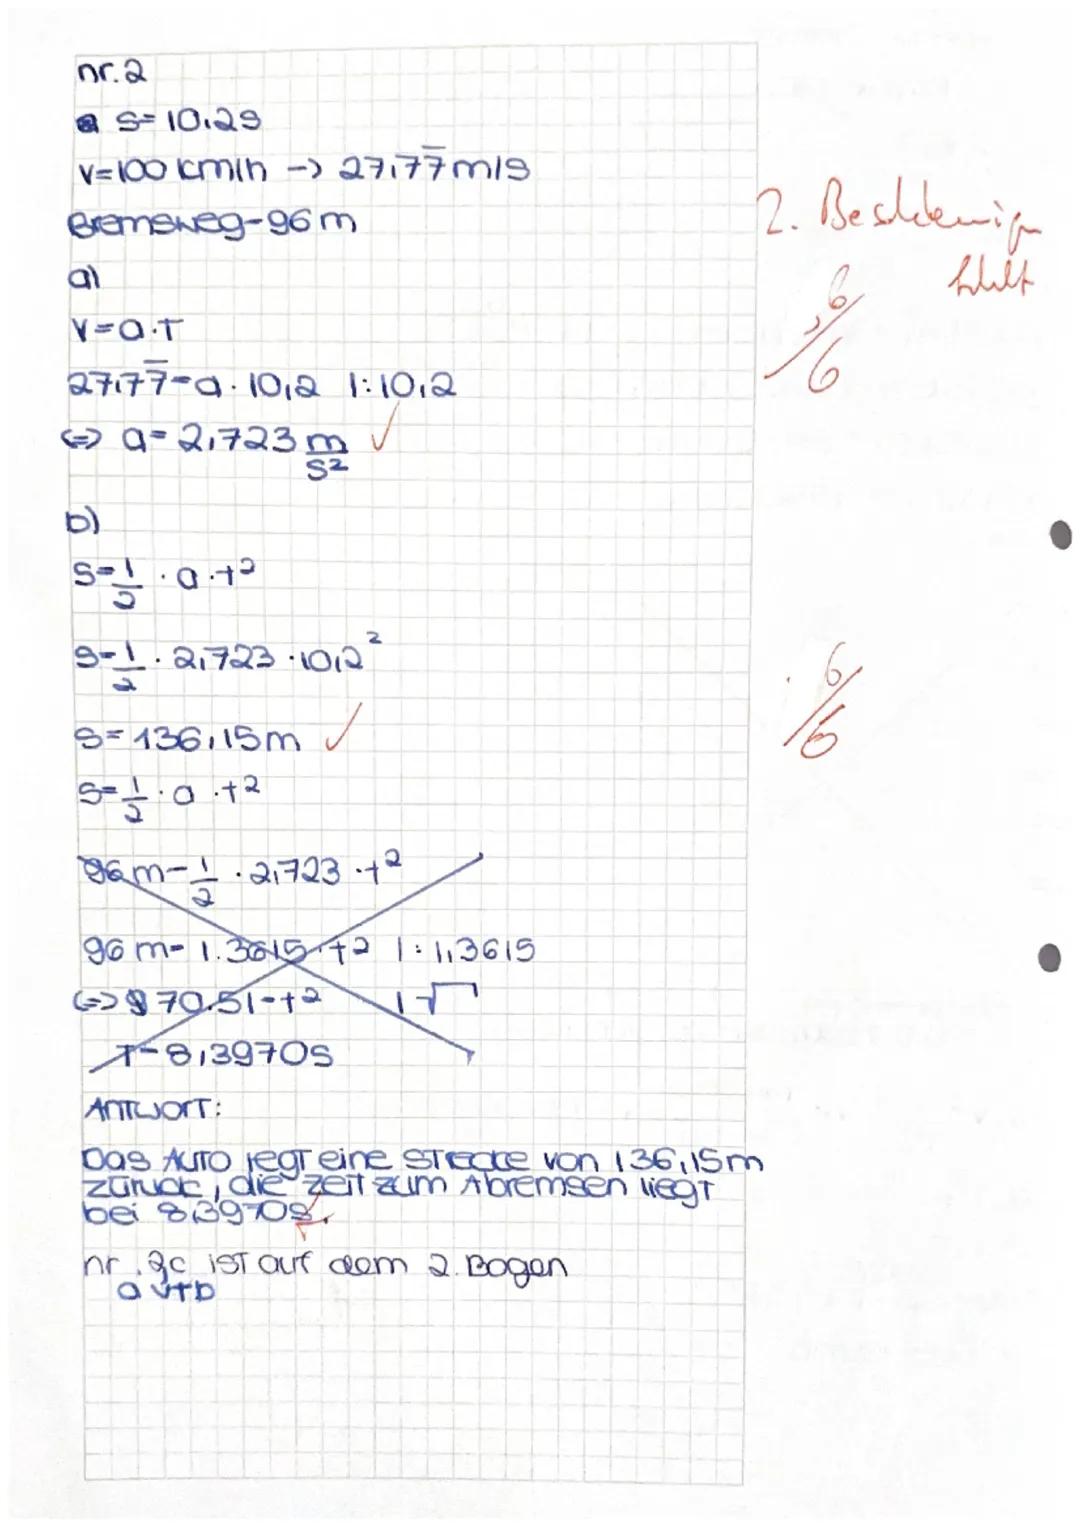 nr. 2
s= 10,2s
v=100 km/h -> 27,77̅ m/s
Bremsweg-96 m
2. Beschleunig
fehlt
a)
6/6
v=a·T
27,77̅=a · 10,2 |:10,2
<=> a= 2,723 m/s² ✓
b)
s=1/2 · a · t²
s=1/2 · 2,723 · 10,2²
6/6
s= 136,15m ✓
s=1/2 · a · t²
96 m=1/2 · 2,723 · t²
96 m= 1.3615·t² |: 1,3615
<=> 70.51=t² |√
T=8,3970s
ANTWORT:
Das AUTO legT eine STRECKE von 136,15m
zurück, die zeiT zum Abremsen liegT
bei 8,3970s.
nr. 2c isT auf dem 2. Bogen
a u+b